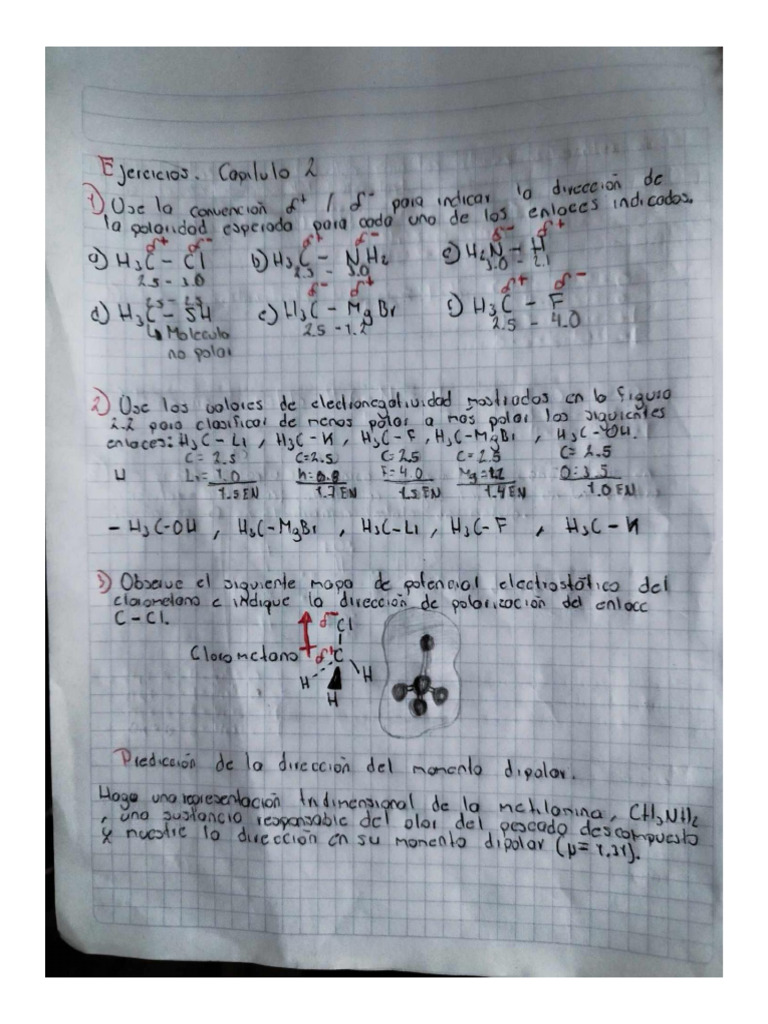 Ejercicios. Capitulo 2
1) Use la convención δ+ / δ- para indicar la dirección de
la polaridad esperada para cada uno de los enlaces indicados.
δ+ δ- δ+ δ- δ- δ+
a) H₃C - Cl b) H₃C - NH₂ c) H₂N - H
2.5 - 3.0 2.5 - 3.0 3.0 - 2.1
2.5 - 2.5 δ- δ+ δ+ δ-
d) H₃C - SH e) H₃C - MgBr f) H₃C - F
2.5 - 1.2 2.5 - 4.0
↳ Molecula
no polar
2) Use los valores de electronegatividad mostrados en la figura
2.2 para clasificar de menos polar a mas polar los siguientes
enlaces: H₃C - Li, H₃C - K, H₃C - F, H₃C - MgBr, H₃C - OH.
C = 2.5 C=2.5 C=2.5 C=2.5 C=2.5
Li=1.0 K=0.8 F=4.0 Mg=1.2 O=3.5
1.5 EN 1.7 EN 1.5 EN 1.4 EN 1.0 EN
- H₃C-OH, H₃C-MgBr, H₃C-Li, H₃C-F, H₃C-K
3) Observe el siguiente mapa de potencial electrostático del
clorometano e indique la dirección de polarización del enlace
C - Cl.
δ- Cl
Clorometano δ+ C
H H
H
Predicción de la dirección del momento dipolar.
Haga una representación tridimensional de la metilamina, CH₃NH₂
, una sustancia responsable del olor del pescado descompuesto
y muestre la dirección en su momento dipolar (μ= 1.31).